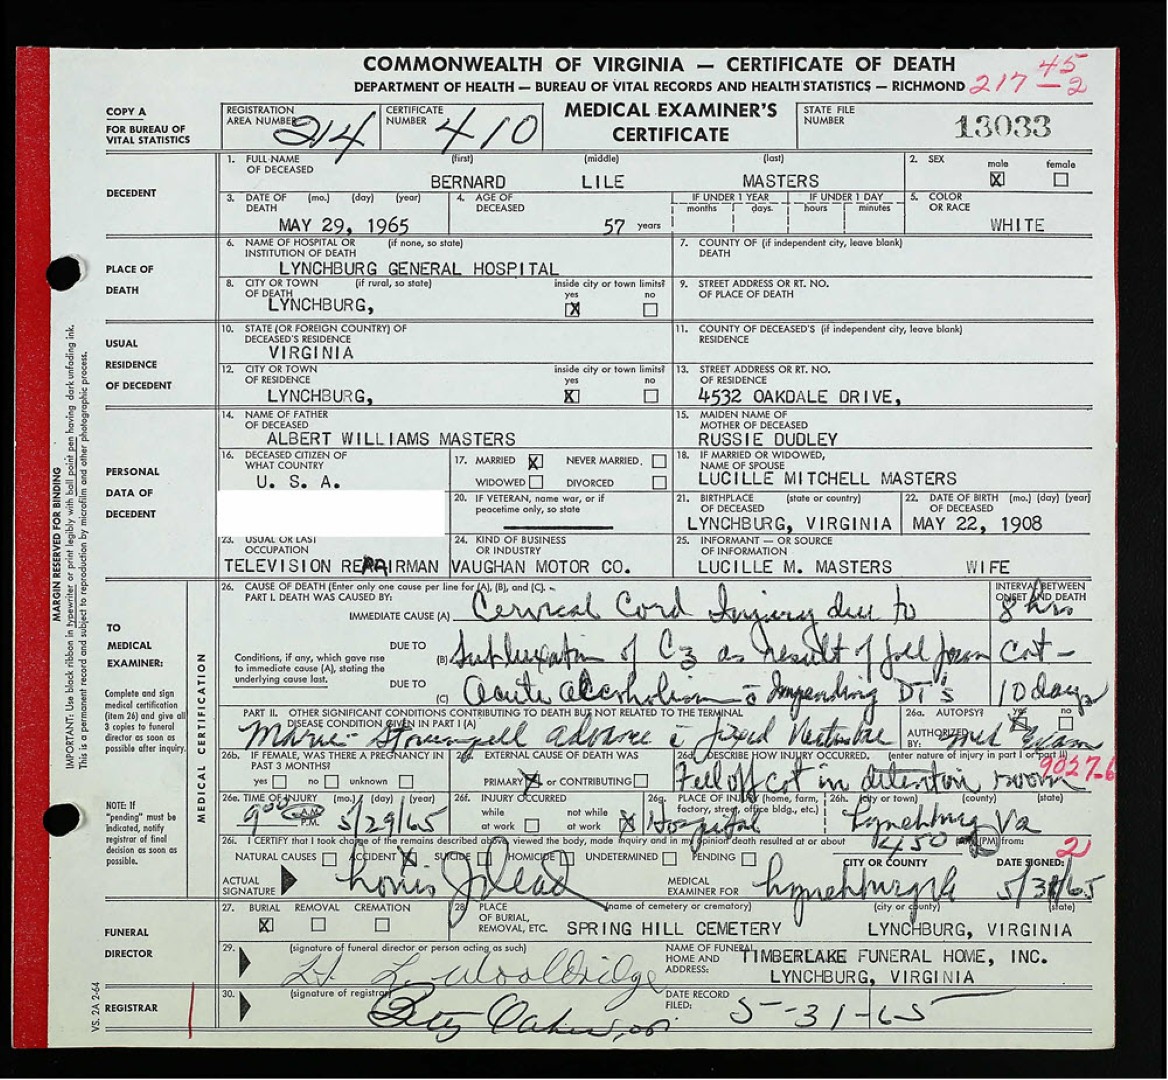 COMMONWEALTH OF VIRGINIA — CERTIFICATE OF DEATH
DEPARTMENT OF HEALTH — BUREAU OF VITAL RECORDS AND HEALTH STATISTICS — RICHMOND
217 45-2
COPY A
FOR BUREAU OF VITAL STATISTICS
REGISTRATION AREA NUMBER 214
CERTIFICATE NUMBER 410
MEDICAL EXAMINER'S CERTIFICATE
STATE FILE NUMBER 13033
DECEDENT
1. FULL NAME OF DECEASED (first) (middle) (last)
BERNARD LILE MASTERS
2. SEX male X female
3. DATE OF DEATH (mo.) (day) (year)
MAY 29, 1965
4. AGE OF DECEASED 57 years
IF UNDER 1 YEAR months days
IF UNDER 1 DAY hours minutes
5. COLOR OR RACE WHITE
PLACE OF DEATH
6. NAME OF HOSPITAL OR INSTITUTION OF DEATH (if none, so state)
LYNCHBURG GENERAL HOSPITAL
7. COUNTY OF DEATH (if independent city, leave blank)
8. CITY OR TOWN OF DEATH (if rural, so state)
LYNCHBURG,
inside city or town limits? yes X no
9. STREET ADDRESS OR RT. NO. OF PLACE OF DEATH
USUAL RESIDENCE OF DECEDENT
10. STATE (OR FOREIGN COUNTRY) OF DECEASED'S RESIDENCE
VIRGINIA
11. COUNTY OF DECEASED'S RESIDENCE (if independent city, leave blank)
12. CITY OR TOWN OF RESIDENCE
LYNCHBURG,
inside city or town limits? yes X no
13. STREET ADDRESS OR RT. NO. OF RESIDENCE
4532 OAKDALE DRIVE,
PERSONAL DATA OF DECEDENT
14. NAME OF FATHER OF DECEASED
ALBERT WILLIAMS MASTERS
15. MAIDEN NAME OF MOTHER OF DECEASED
RUSSIE DUDLEY
16. DECEASED CITIZEN OF WHAT COUNTRY
U. S. A.
17. MARRIED X NEVER MARRIED
WIDOWED DIVORCED
18. IF MARRIED OR WIDOWED, NAME OF SPOUSE
LUCILLE MITCHELL MASTERS
20. IF VETERAN, name war, or if peacetime only, so state
21. BIRTHPLACE OF DECEASED (state or country)
LYNCHBURG, VIRGINIA
22. DATE OF BIRTH OF DECEASED (mo.) (day) (year)
MAY 22, 1908
23. USUAL OR LAST OCCUPATION
TELEVISION REPAIRMAN
24. KIND OF BUSINESS OR INDUSTRY
VAUGHAN MOTOR CO.
25. INFORMANT — OR SOURCE OF INFORMATION
LUCILLE M. MASTERS WIFE
MARGIN RESERVED FOR BINDING
IMPORTANT: Use black ribbon in typewriter or print legibly with ball point pen having dark unfading ink.
This is a permanent record and subject to reproduction by microfilm and other photographic process.
TO MEDICAL EXAMINER:
Complete and sign medical certification (item 26) and give all 3 copies to funeral director as soon as possible after inquiry.
NOTE: IF "pending" must be indicated, notify registrar of final decision as soon as possible.
MEDICAL CERTIFICATION
26. CAUSE OF DEATH (Enter only one cause per line for (A), (B), and (C).
PART I. DEATH WAS CAUSED BY:
INTERVAL BETWEEN ONSET AND DEATH
IMMEDIATE CAUSE (A) Cervical Cord Injury due to 8 hrs
Conditions, if any, which gave rise to immediate cause (A), stating the underlying cause last.
DUE TO (B) Subluxation of C3 as result of fall from cot -
DUE TO (C) Acute alcoholism c Impending DT's 10 days
PART II. OTHER SIGNIFICANT CONDITIONS CONTRIBUTING TO DEATH BUT NOT RELATED TO THE TERMINAL DISEASE CONDITION GIVEN IN PART I (A)
Marie-Strumpell advance c fixed Vertebrae
26a. AUTOPSY? yes X no
AUTHORIZED BY: Med Exam
26b. IF FEMALE, WAS THERE A PREGNANCY IN PAST 3 MONTHS?
yes no unknown
26c. EXTERNAL CAUSE OF DEATH WAS
PRIMARY X or CONTRIBUTING
26d. DESCRIBE HOW INJURY OCCURRED. (enter nature of injury in part I or part II)
Fell off cot in detention room
9027-6
26e. TIME OF INJURY (mo.) (day) (year)
9:00 A.M. P.M. 5/29/65
26f. INJURY OCCURRED
while at work not while at work X
26g. PLACE OF INJURY (home, farm, factory, street, office bldg., etc.)
Hospital
26h. (city or town) (county) (state)
Lynchburg Va
26i. I CERTIFY that I took charge of the remains described above, viewed the body, made inquiry and in my opinion death resulted at or about 450 (PM) from:
NATURAL CAUSES ACCIDENT X SUICIDE HOMICIDE UNDETERMINED PENDING
2
ACTUAL SIGNATURE
MEDICAL EXAMINER FOR
CITY OR COUNTY Lynchburg
DATE SIGNED: 5/31/65
FUNERAL DIRECTOR
27. BURIAL X REMOVAL CREMATION
28. PLACE OF BURIAL, REMOVAL, ETC. (name of cemetery or crematory) (city or county) (state)
SPRING HILL CEMETERY LYNCHBURG, VIRGINIA
29. (signature of funeral director or person acting as such)
Wooldridge
NAME OF FUNERAL HOME AND ADDRESS:
TIMBERLAKE FUNERAL HOME, INC.
LYNCHBURG, VIRGINIA
REGISTRAR
30. (signature of registrar)
DATE RECORD FILED: 5-31-65
VS. 2A 2-64